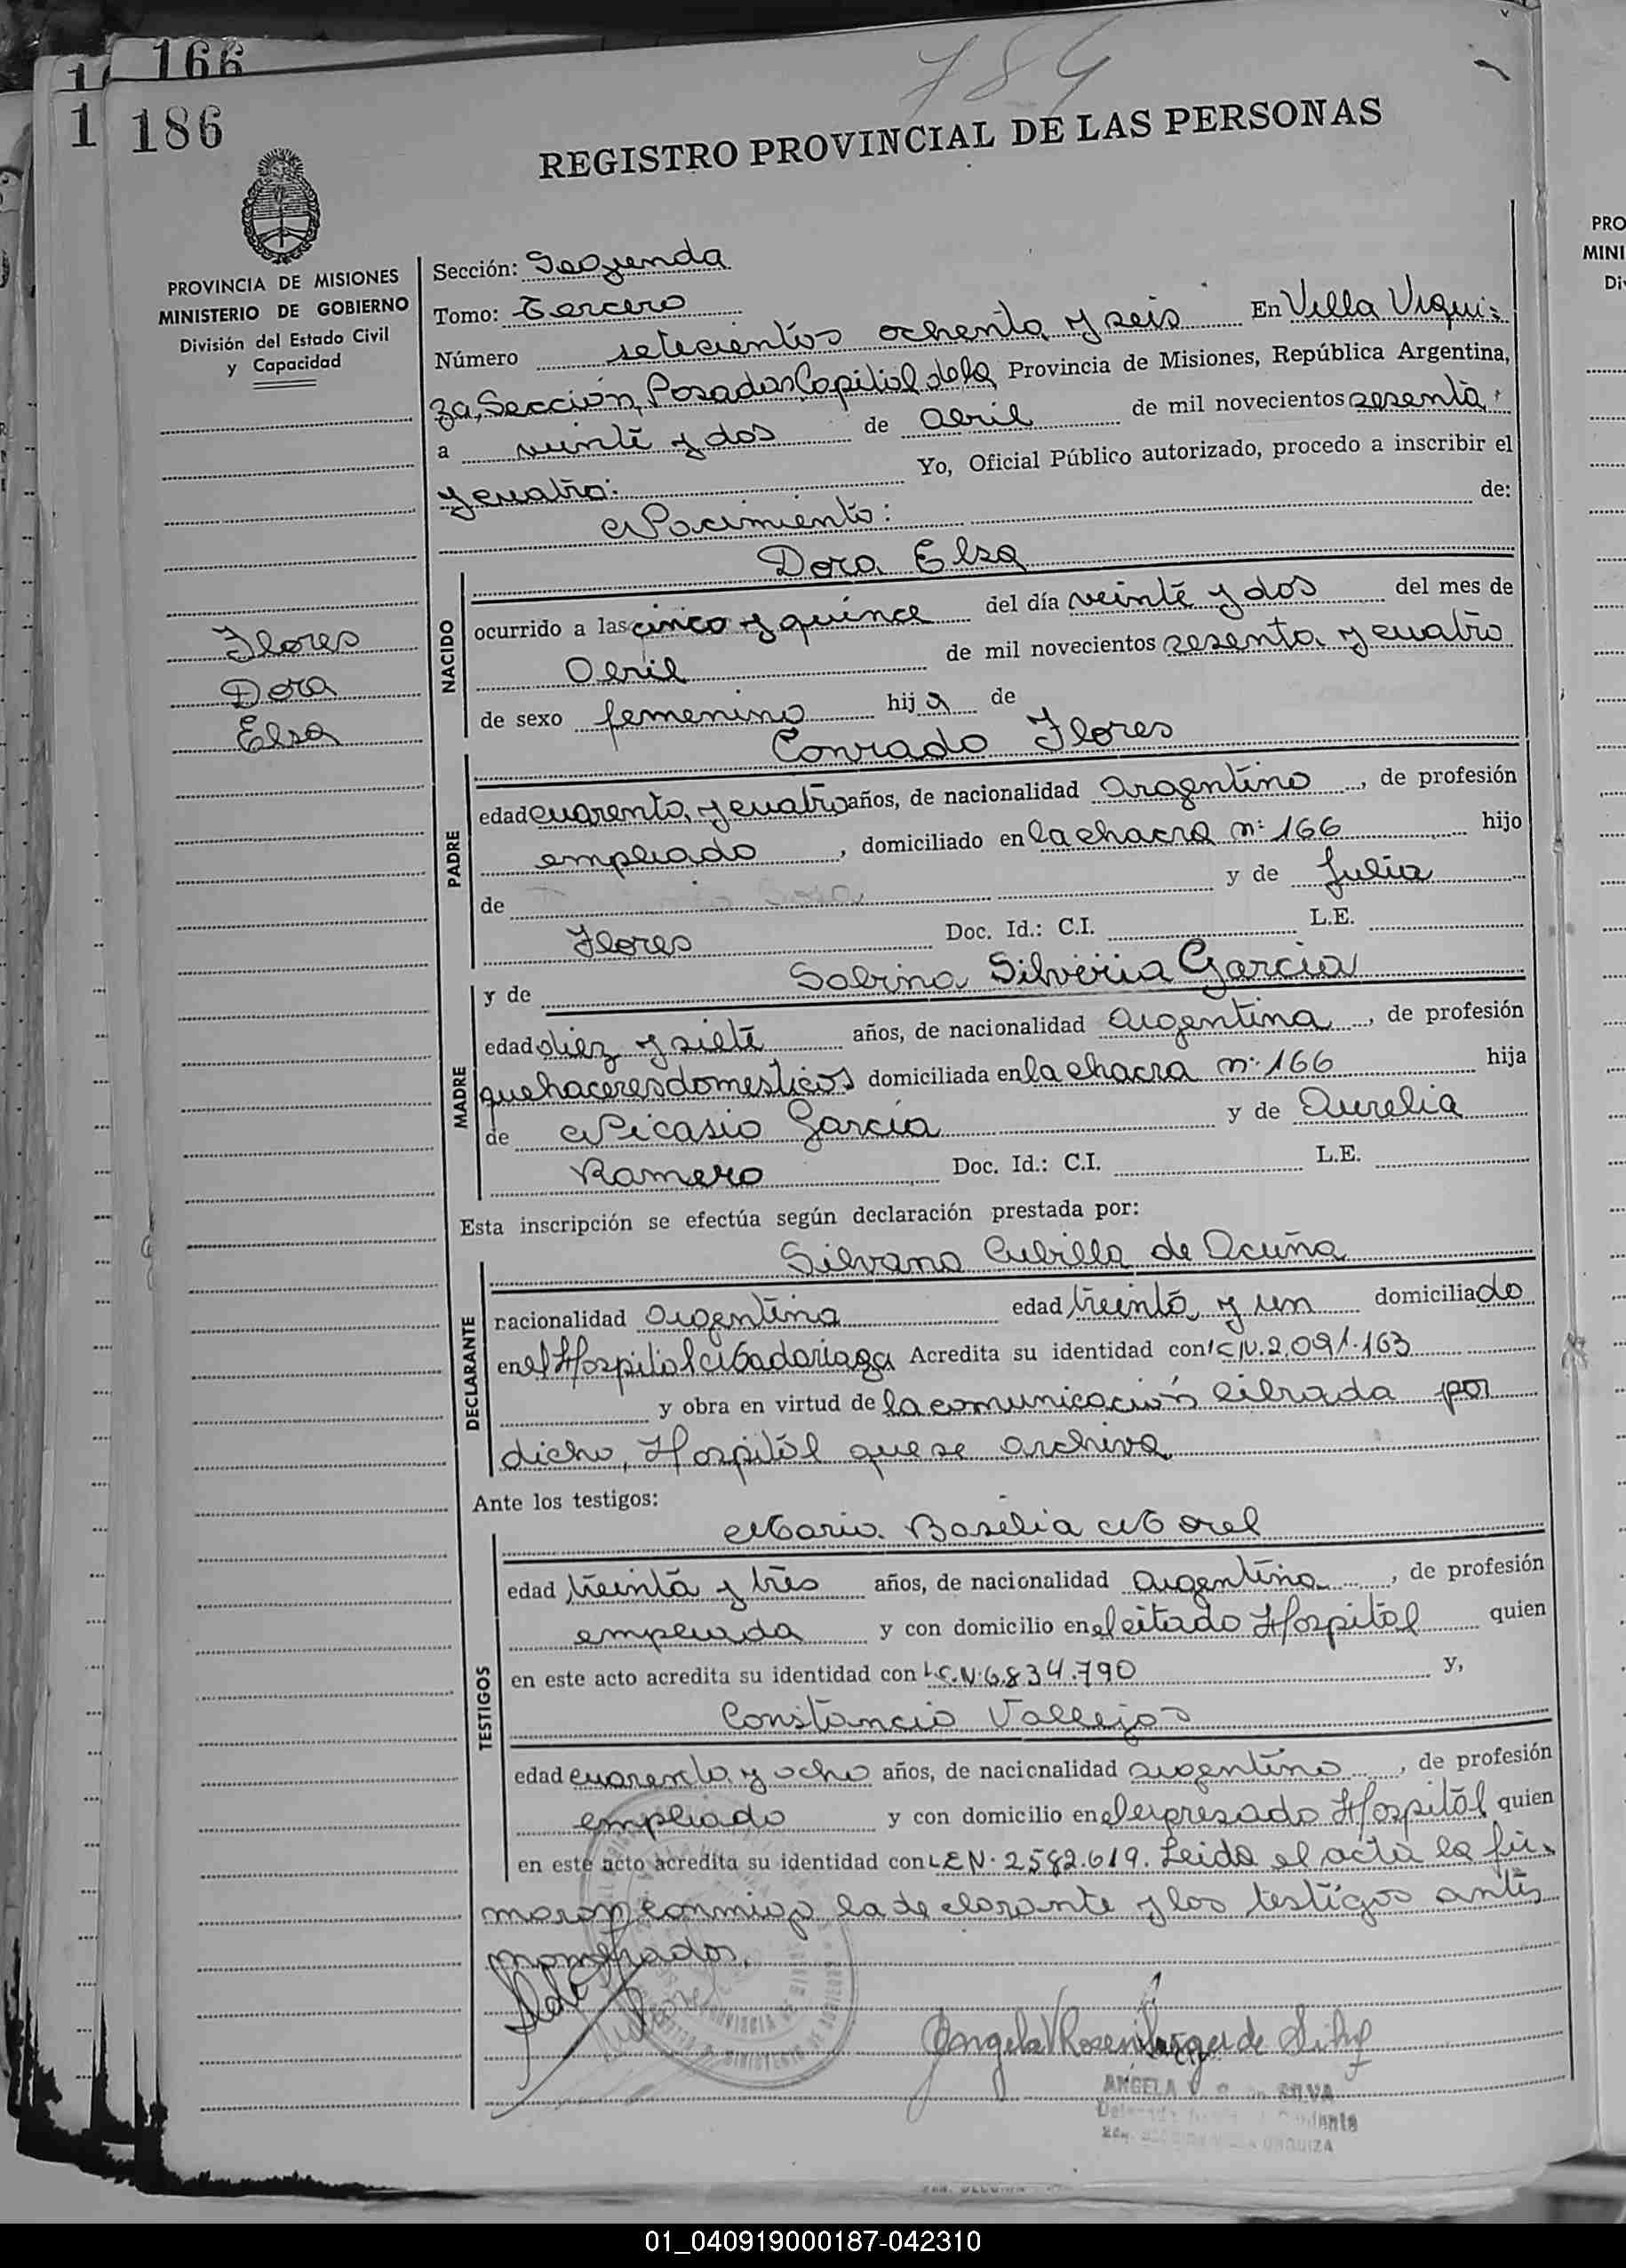 166
1 186
784
REGISTRO PROVINCIAL DE LAS PERSONAS
PROVINCIA DE MISIONES
MINISTERIO DE GOBIERNO
División del Estado Civil
y Capacidad
Flores
Dora
Elsa
Sección: Segunda
Tomo: Tercero
Número setecientos ochenta y seis En Villa Urqui-
za, Sección, Posadas Capital de la Provincia de Misiones, República Argentina,
a veinte y dos de abril de mil novecientos sesenta
y cuatro: Yo, Oficial Público autorizado, procedo a inscribir el
Nacimiento: de:
NACIDO
Dora Elsa
ocurrido a las cinco y quince del día veinte y dos del mes de
Abril de mil novecientos sesenta y cuatro
de sexo femenino hija de
PADRE
Conrado Flores
edad cuarenta y cuatro años, de nacionalidad argentino, de profesión
empleado, domiciliado en la chacra nº 166 hijo
de y de Julia
Flores Doc. Id.: C.I. L.E.
MADRE
y de Sabina Silveria Garcia
edad diez y siete años, de nacionalidad argentina, de profesión
quehaceres domesticos domiciliada en la chacra nº 166 hija
de Nicasio García y de Aurelia
Romero Doc. Id.: C.I. L.E.
Esta inscripción se efectúa según declaración prestada por:
DECLARANTE
Silvana Cubilla de Acuña
nacionalidad argentina edad treinta y un domiciliado
en el Hospital Madariaga Acredita su identidad con 2.091.163
y obra en virtud de la comunicación librada por
dicho, Hospital que se archiva
Ante los testigos:
TESTIGOS
Maria Baselia Morel
edad treinta y tres años, de nacionalidad argentina, de profesión
empleada y con domicilio en el citado Hospital quien
en este acto acredita su identidad con L.C.Nº 6.834.790 y,
Constancio Vallejos
edad cuarenta y ocho años, de nacionalidad argentino, de profesión
empleado y con domicilio en el expresado Hospital quien
en este acto acredita su identidad con L.E.Nº 2582.619. Leida el acta la fir-
maron conmigo la declarante y los testigos antes
nombrados.
ANGELA V. SILVA
URQUIZA
PRO
MINI
01_040919000187-042310